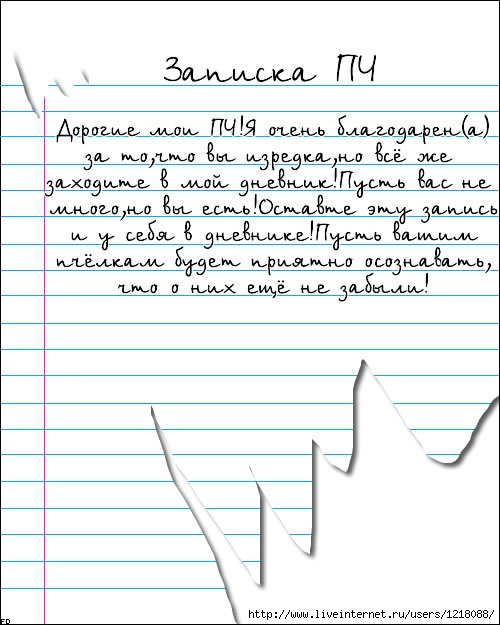 Записка ПЧ
Дорогие мои ПЧ!Я очень благодарен(а)
за то,что вы изредка,но всё же
заходите в мой дневник!Пусть вас не
много,но вы есть!Оставте эту запись
и у себя в дневнике!Пусть вашим
пчёлкам будет приятно осознавать,
что о них ещё не забыли!
http://www.liveinternet.ru/users/1218088/
FD